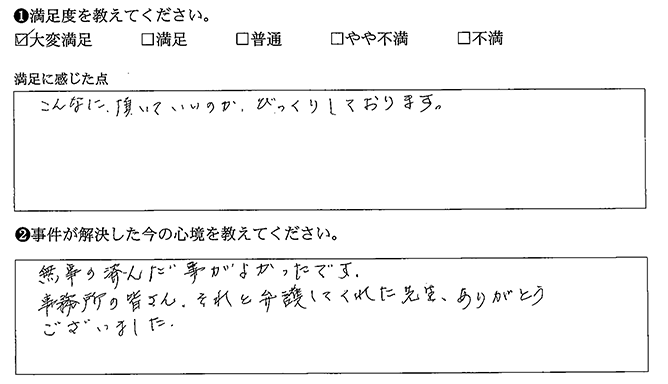 ❶満足度を教えてください。
☑大変満足 □満足 □普通 □やや不満 □不満
満足に感じた点
こんなに、頂いていいのか、びっくりしております。
❷事件が解決した今の心境を教えてください。
無事の済んだ事がよかったです。
事務所の皆さん、それと弁護してくれた先生、ありがとう
ございました。